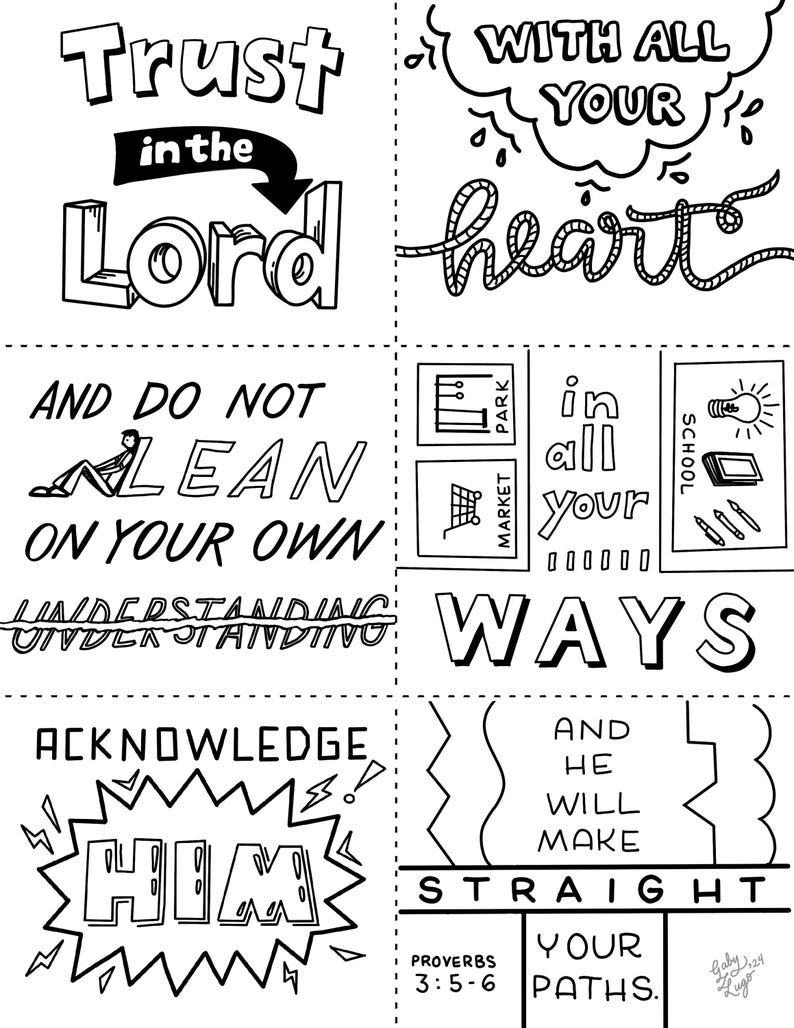 Trust
in the
Lord
WITH ALL
YOUR
heart
AND DO NOT
LEAN
ON YOUR OWN
UNDERSTANDING
PARK
MARKET
in
all
your
SCHOOL
WAYS
ACKNOWLEDGE
HIM
AND
HE
WILL
MAKE
STRAIGHT
YOUR
PATHS.
PROVERBS
3:5-6
Gaby
Lugo '24